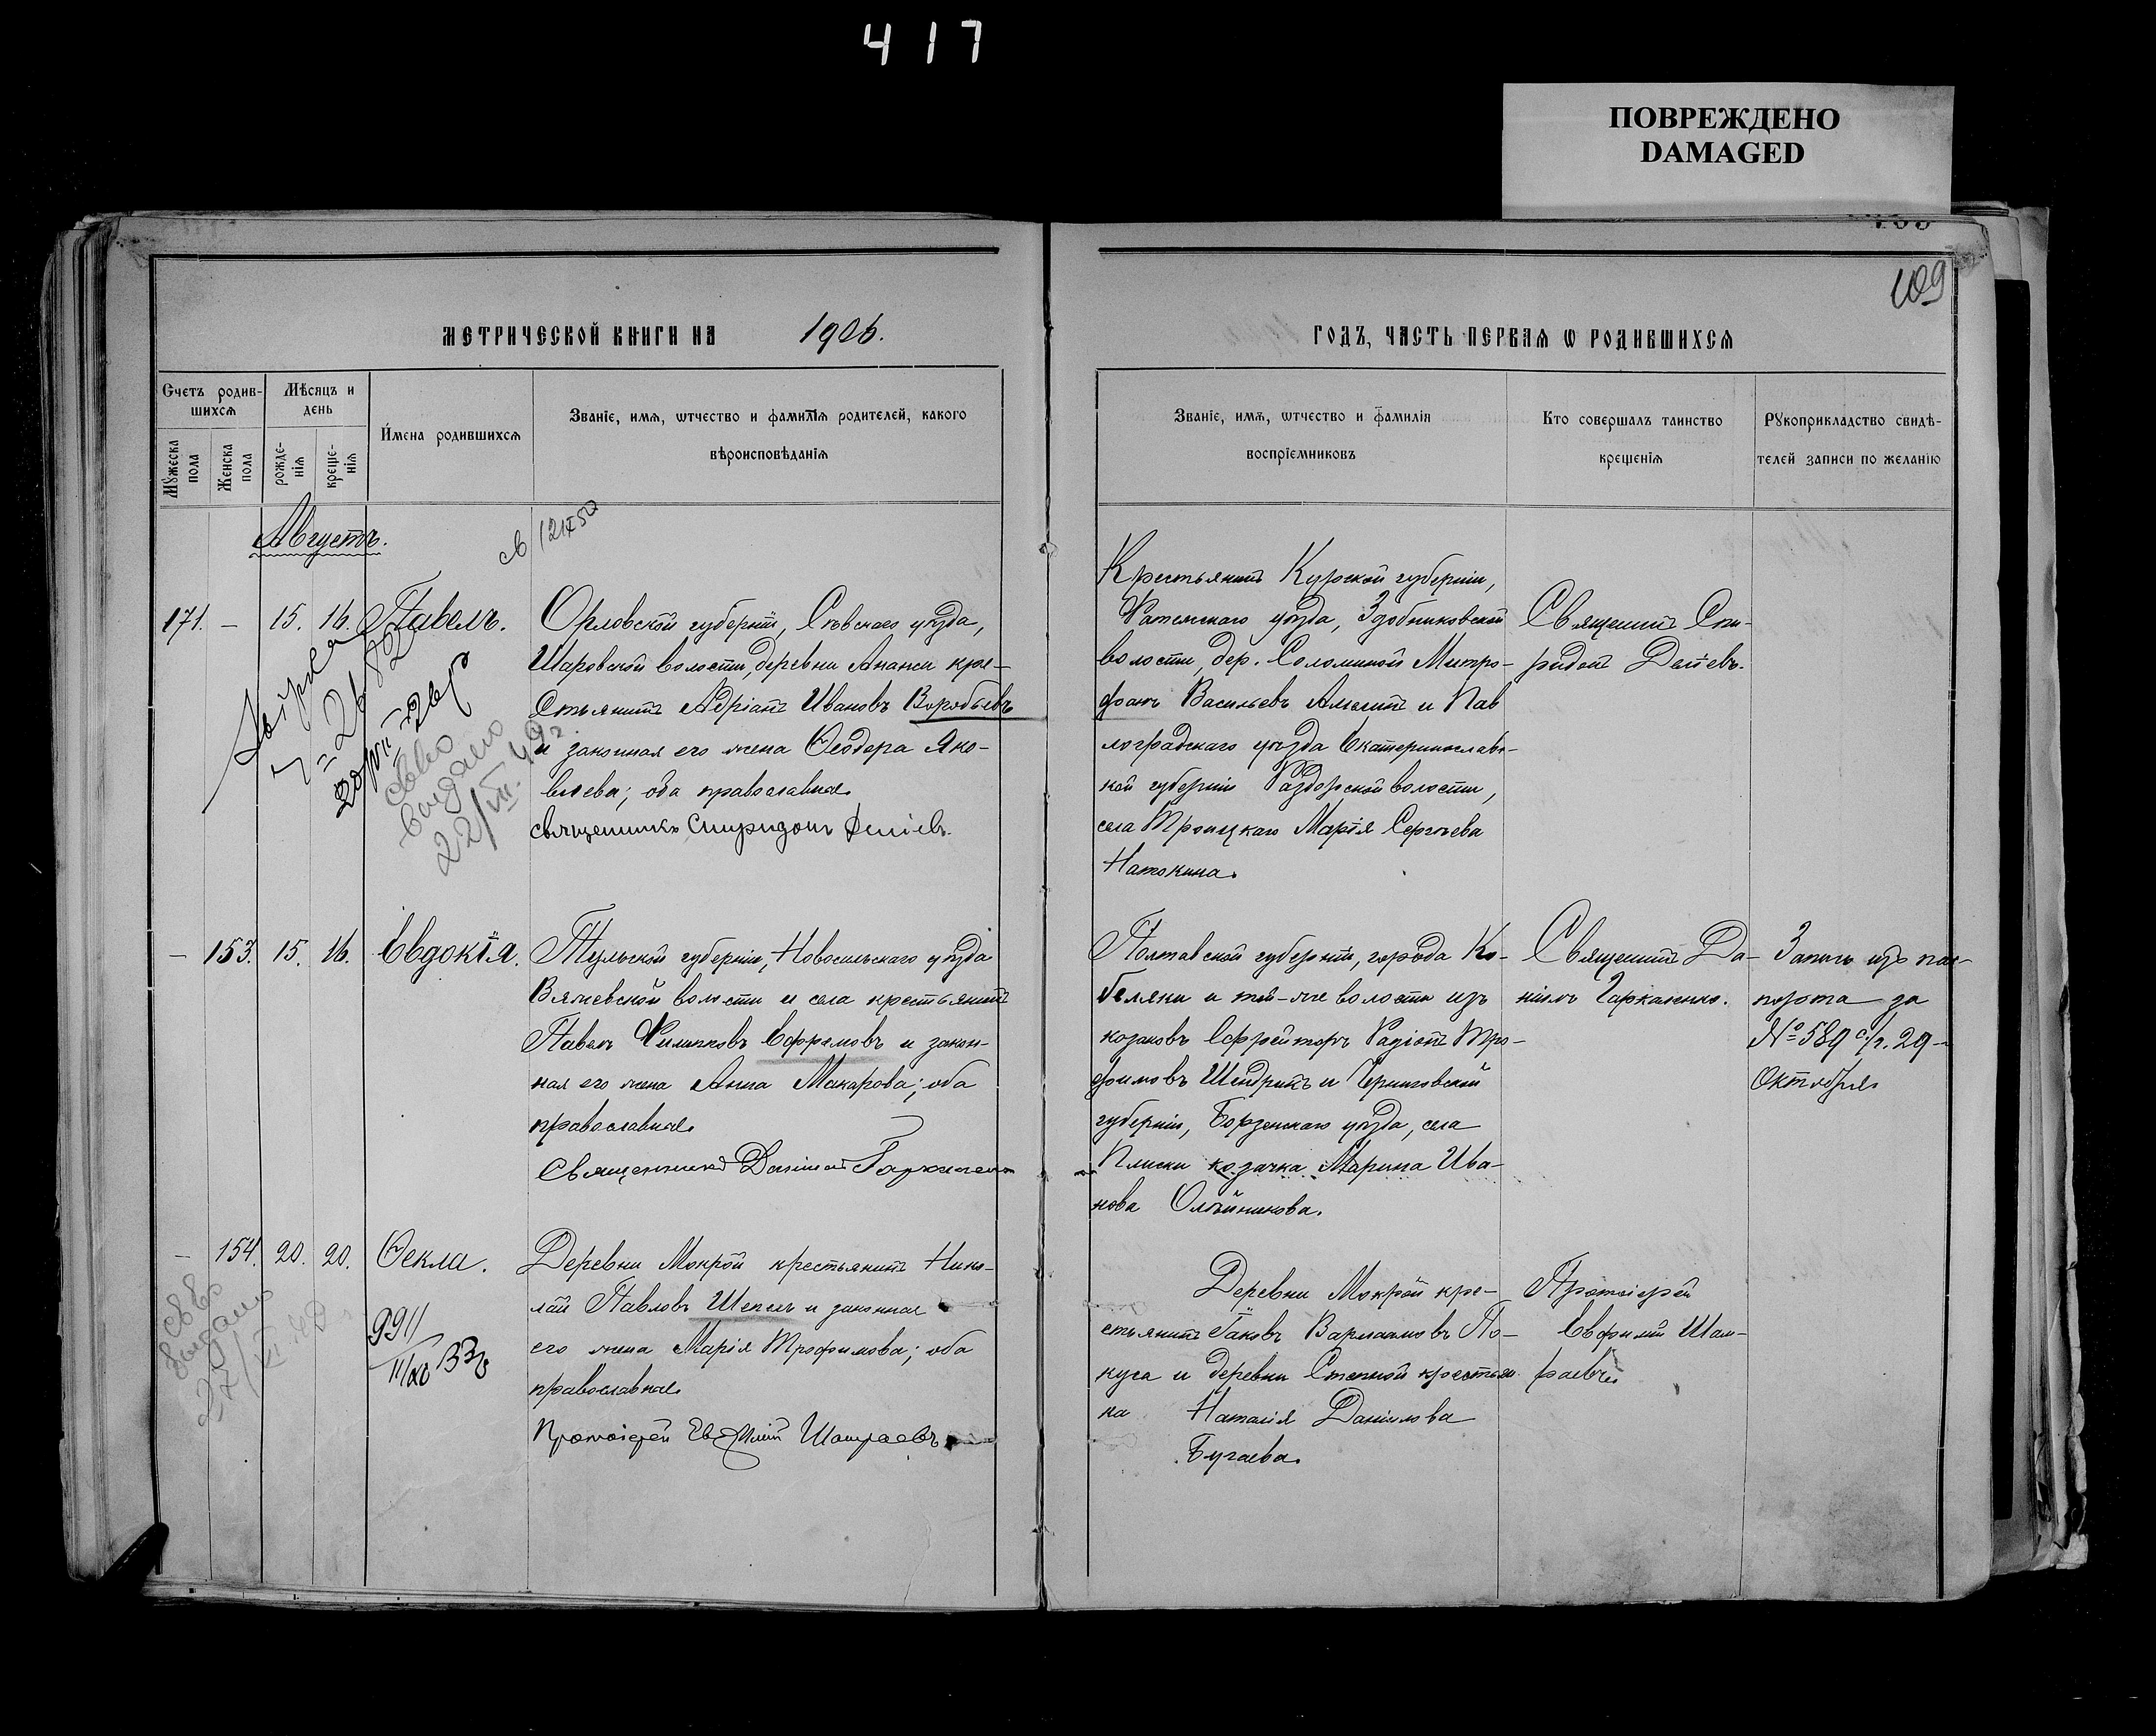 417
ПОВРЕЖДЕНО
DAMAGED
109
МЕТРИЧЕСКОЙ КНИГИ НА 1906.
ГОДЪ, ЧАСТЬ ПЕРВАЯ Ѡ РОДИВШИХСЯ
Счетъ родив-
шихся
Мѣсяцъ и
день
Имена родившихся
Званіе, имя, ѡтчество и фамилія родителей, какого
вѣроисповѣданія
Мужеска
пола
Женска
пола
рожде-
нія
креще-
нія
Званіе, имя, ѡтчество и фамилія
воспріемниковъ
Кто совершалъ таинство
крещенія
Рукоприкладство свидѣ-
телей записи по желанію
Августъ.
171. – 15. 16. Павелъ.
Орловской губерніи, Сѣвскаго уѣзда,
Шаровской волости, деревни Ананси кре-
стьянинъ Адріанъ Ивановъ Воробьевъ
и законная его жена Ѳеодора Яко-
влева; оба православные.
священникъ Спиридонъ Деліевъ.
выдано
22/VII. 49г.
Крестьянинъ Курской губерніи,
Фатежскаго уѣзда, Здобниковской
волости, дер. Соломиной Митро-
фанъ Васильевъ Алехинъ и Пав
лоградскаго уѣзда Екатеринослав-
ской губерніи Раздорской волости,
села Троицкаго Марія Сергѣева
Натокина.
Священникъ Спи-
ридонъ Деліевъ.
– 153. 15. 16. Евдокія.
Тульской губерніи, Новосильскаго уѣзда
Вяжевской волости и села крестьянинъ
Павелъ Филипповъ Ефремовъ и закон-
ная его жена Анна Макарова; оба
православные.
Священникъ Даніилъ Гаркаленко
Полтавской губерніи, города Ко-
беляки и той-же волости изъ
козаковъ Ефрейторъ Родіонъ Тро-
фимовъ Шендрикъ и Черниговской
губерніи, Борзенскаго уѣзда, села
Плиски козачка Марина Ива-
нова Олѣйникова.
Священникъ Да-
ніилъ Гаркаленко.
Запись изъ пас-
порта за
№ 589 с/г. 29-
Октября.
– 154. 20. 20. Ѳекла.
Деревни Мокрой крестьянинъ Нико-
лай Павловъ Шепель и законная
его жена Марія Трофимова; оба
православные.
Протоіерей Евфимій Шашраевъ
выдано
Деревни Мокрой кре-
стьянинъ Іаковъ Варлаамовъ По-
куса и деревни Степной крестьян
ка Наталія Даніилова
Бугаева.
Протоіерей
Евфимій